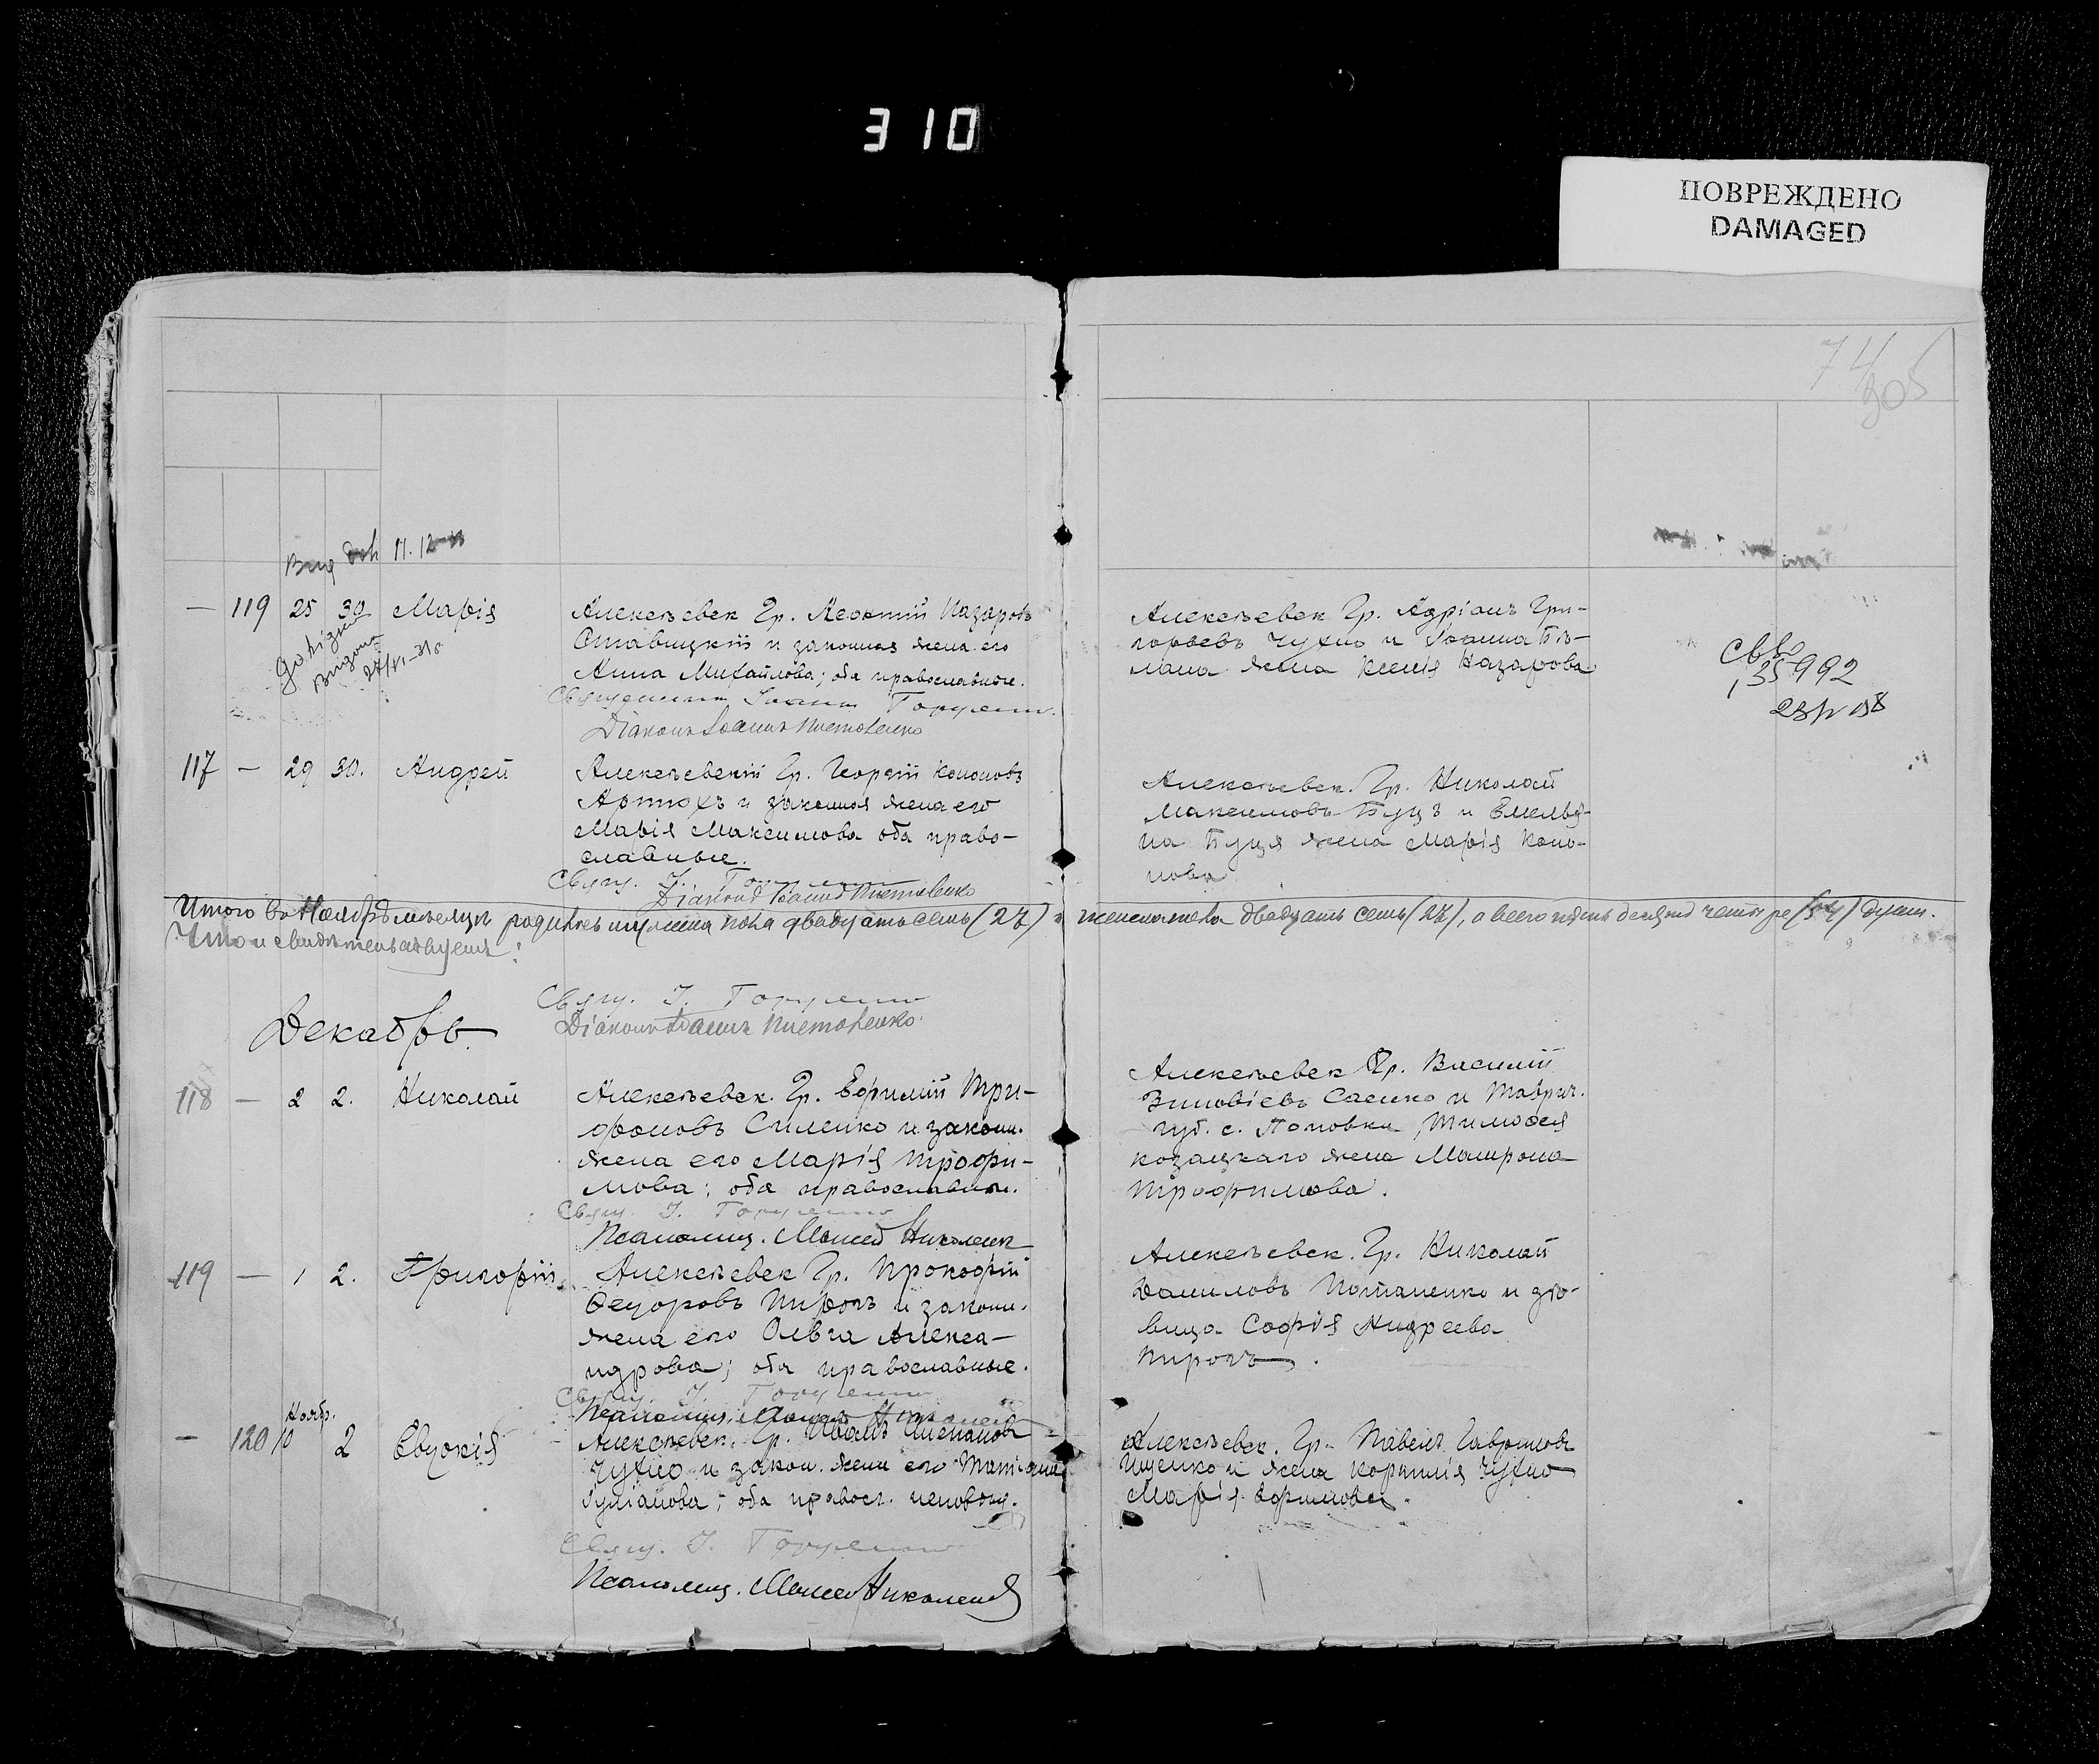 310
ПОВРЕЖДЕНО
DAMAGED
74
305
11.12
— 119 25 30 Марія
Алексѣевск Гр. Леонтій Назаровъ
Ставицкій и законная жена его
Анна Михайлова; оба православные.
Священник Іоанн
Діаконъ Іоаннъ
Алексѣевск Гр. Адріанъ Гри-
горьевъ Чухно и Іоанна
жена Ксенія Назарова
Довідка
видана
27/VI-31
135992
117 — 29 30. Андрей
Алексѣевскій Гр. Георгій Кононовъ
Артюхъ и законная жена его
Марія Максимова оба право-
славные.
Свящ. І.
Діаконъ Іоаннъ
Алексѣевск. Гр. Николай
Максимовъ Буцъ и Емелья-
на Буця жена Марія Коно-
нова
Итого въ Ноябрѣ мѣсяцѣ родилось мужеска пола двадцать семь (27) и женска пола двадцать семь (27), а всего пятьдесятъ четыре (54) душ.
Что и свидѣтельствуемъ:
Свящ. І.
Діаконъ Іоаннъ
Декабрь.
118 — 2 2. Николай
Алексѣевск. Гр. Ефимій Три-
фоновъ Силенко и законн.
жена его Марія Трофи-
мова; оба православные.
Свящ. І.
Псаломщ. Моисей Николенко
Алексѣевск Гр. Василій
Зиновіевъ Саенко и Таврич.
губ. с. Поповки Тимофея
Козацкаго жена Матрона
Трофимова.
119 — 1 2. Григорій
Алексѣевск Гр. Прокофій
Ѳедоровъ Пирогъ и законн.
жена его Ольга Алекса-
ндрова; оба православные.
Свящ. І.
Псаломщ. Моисей Николенко
Алексѣевск. Гр. Николай
Даниловъ Потапенко и дѣ-
вица Софія Андреева
Пирогъ.
Ноябр.
— 120 10 2 Евдокія
Алексѣевск. Гр. Иванъ Степановъ
Чухно и закон. жена его Татіана
Іуліанова; оба правосл. исповѣд.
Свящ. І.
Псаломщ. Моисей Николенко
Алексѣевск. Гр. Павелъ Гавриловъ
Ищенко и жена Корнилія Чухно
Марія Ефимова.